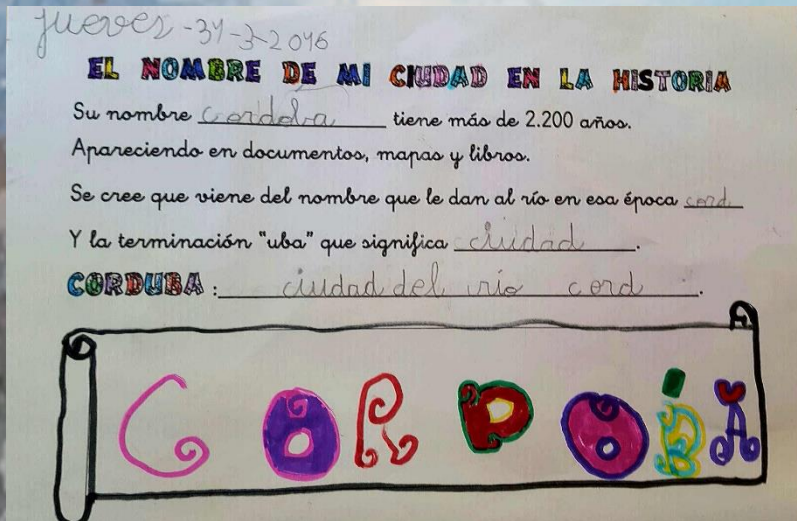 jueves-31-3-2016
EL NOMBRE DE MI CIUDAD EN LA HISTORIA
Su nombre cordoba tiene más de 2.200 años.
Apareciendo en documentos, mapas y libros.
Se cree que viene del nombre que le dan al río en esa época cord
Y la terminación "uba" que significa ciudad.
CORDUBA: ciudad del río cord.
CORDOBA